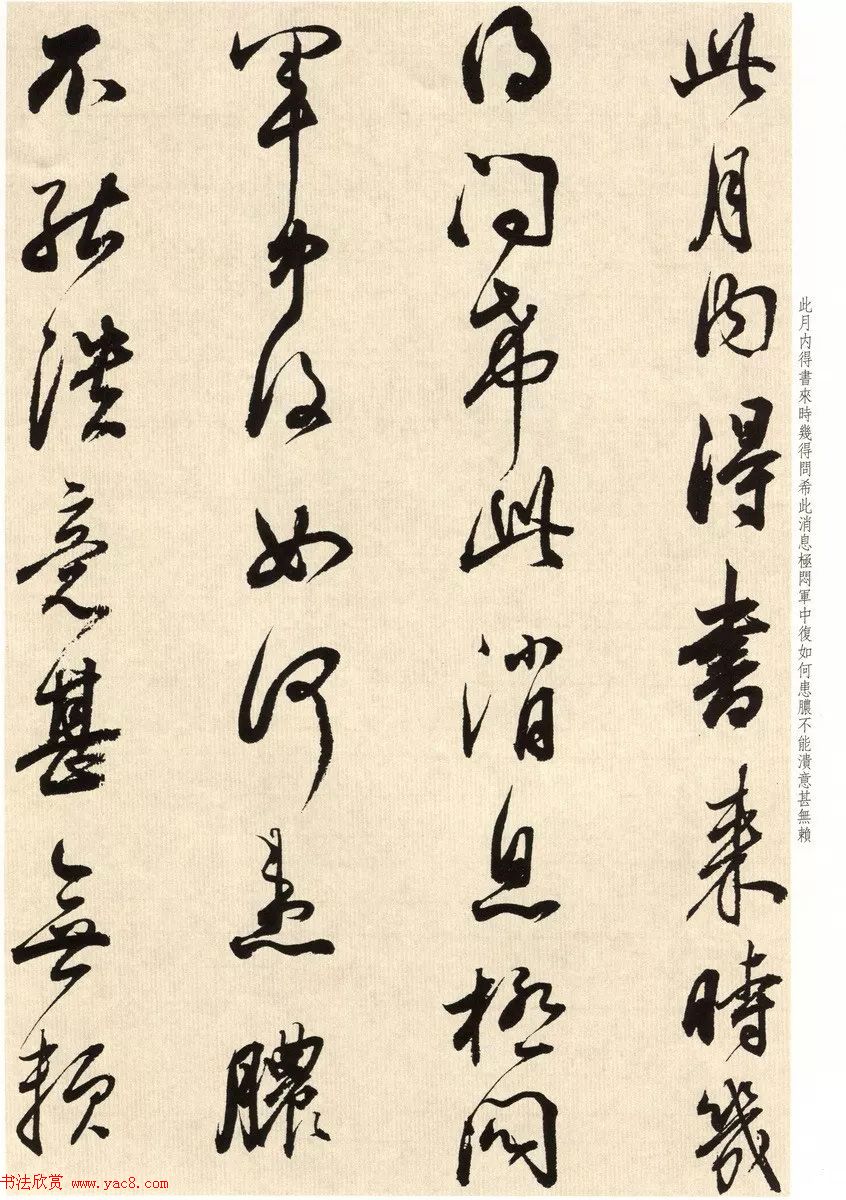 此月内得書来時幾
得問希此消息極悶
軍中復如何患膿
不能潰意甚無賴
此月內得書來時幾得問希此消息極悶軍中復如何患膿不能潰意甚無賴
书法欣赏 www.yac8.com